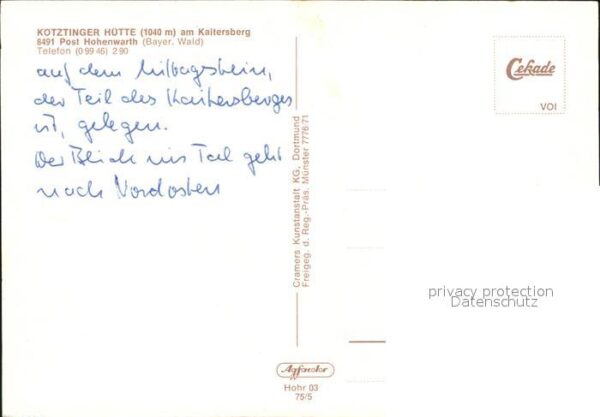 KÖTZTINGER HÜTTE (1040 m) am Kaitersberg
8491 Post Hohenwarth (Bayer. Wald)
Telefon (0 99 46) 2 90
auf dem Mittagstein,
der Teil des Kaitersberges
ist, gelegen.
Der Blick ins Tal geht
nach Nordosten
Cramers Kunstanstalt KG, Dortmund
Freigeg. d. Reg.-Präs. Münster 7776 71
Cekade
VOI
privacy protection
Datenschutz
Agfacolor
Hohr 03
75/5